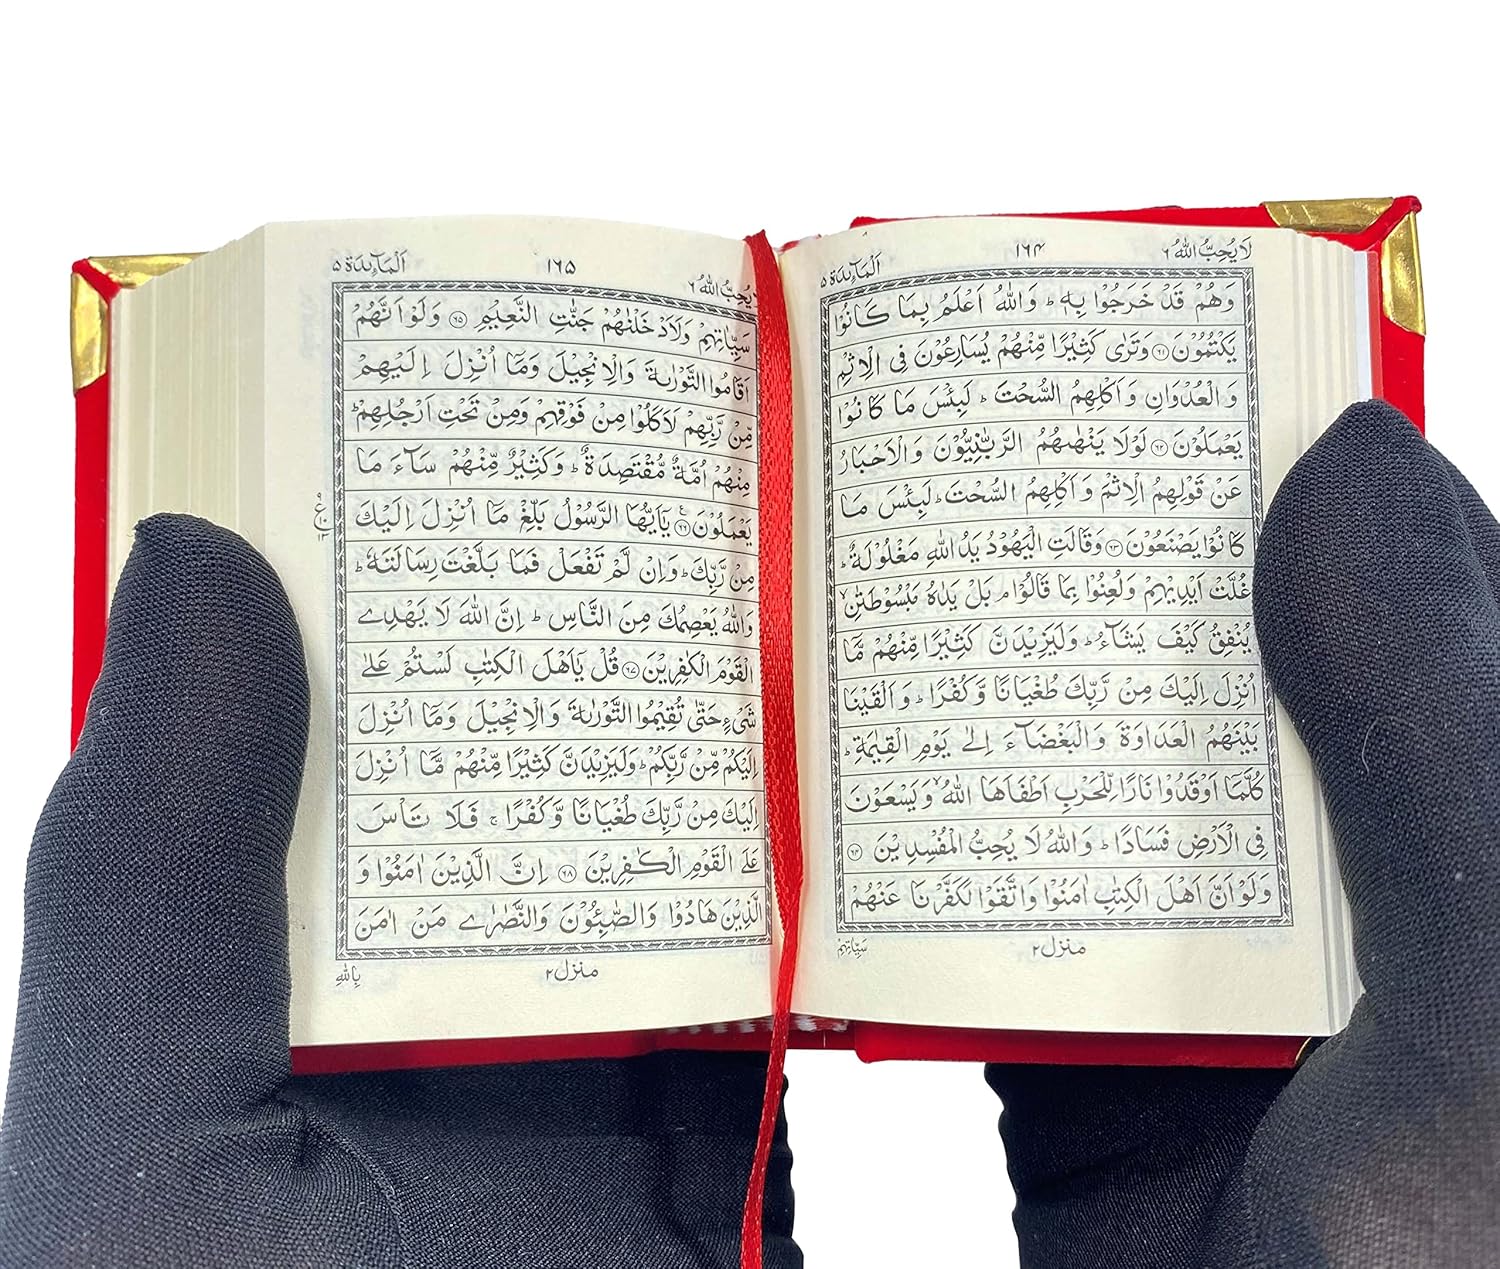 لَا يُحِبُّ اللّٰهُ ٦
١٦٤
اَلْمَآئِدَة ٥
وَهُمْ قَدْ خَرَجُوْا بِهٖ ؕ وَاللّٰهُ اَعْلَمُ بِمَا كَانُوْا
يَكْتُمُوْنَ ﴿٦١﴾ وَتَرٰى كَثِيْرًا مِّنْهُمْ يُسَارِعُوْنَ فِى الْاِثْمِ
وَالْعُدْوَانِ وَاَكْلِهِمُ السُّحْتَ ؕ لَبِئْسَ مَا كَانُوْا
يَعْمَلُوْنَ ﴿٦٢﴾ لَوْلَا يَنْهٰىهُمُ الرَّبّٰنِيُّوْنَ وَالْاَحْبَارُ
عَنْ قَوْلِهِمُ الْاِثْمَ وَاَكْلِهِمُ السُّحْتَ ؕ لَبِئْسَ مَا
كَانُوْا يَصْنَعُوْنَ ﴿٦٣﴾ وَقَالَتِ الْيَهُوْدُ يَدُ اللّٰهِ مَغْلُوْلَةٌ ؕ
غُلَّتْ اَيْدِيْهِمْ وَلُعِنُوْا بِمَا قَالُوْا ۘ بَلْ يَدٰهُ مَبْسُوْطَتٰنِ ۙ
يُنْفِقُ كَيْفَ يَشَآءُ ؕ وَلَيَزِيْدَنَّ كَثِيْرًا مِّنْهُمْ مَّا
اُنْزِلَ اِلَيْكَ مِنْ رَّبِّكَ طُغْيَانًا وَّكُفْرًا ؕ وَاَلْقَيْنَا
بَيْنَهُمُ الْعَدَاوَةَ وَالْبَغْضَآءَ اِلٰى يَوْمِ الْقِيٰمَةِ ؕ
كُلَّمَا اَوْقَدُوْا نَارًا لِّلْحَرْبِ اَطْفَاَهَا اللّٰهُ ۙ وَيَسْعَوْنَ
فِى الْاَرْضِ فَسَادًا ؕ وَاللّٰهُ لَا يُحِبُّ الْمُفْسِدِيْنَ ﴿٦٤﴾
وَلَوْ اَنَّ اَهْلَ الْكِتٰبِ اٰمَنُوْا وَاتَّقَوْا لَكَفَّرْنَا عَنْهُمْ
منزل ٢
سَيِّاٰتِهِمْ
لَا يُحِبُّ اللّٰهُ ٦
١٦٥
اَلْمَآئِدَة ٥
سَيِّاٰتِهِمْ وَلَاَدْخَلْنٰهُمْ جَنّٰتِ النَّعِيْمِ ﴿٦٥﴾ وَلَوْ اَنَّهُمْ
اَقَامُوا التَّوْرٰىةَ وَالْاِنْجِيْلَ وَمَآ اُنْزِلَ اِلَيْهِمْ
مِّنْ رَّبِّهِمْ لَاَكَلُوْا مِنْ فَوْقِهِمْ وَمِنْ تَحْتِ اَرْجُلِهِمْ ؕ
مِنْهُمْ اُمَّةٌ مُّقْتَصِدَةٌ ؕ وَكَثِيْرٌ مِّنْهُمْ سَآءَ مَا
يَعْمَلُوْنَ ﴿٦٦﴾ يٰٓاَيُّهَا الرَّسُوْلُ بَلِّغْ مَآ اُنْزِلَ اِلَيْكَ
مِنْ رَّبِّكَ ؕ وَاِنْ لَّمْ تَفْعَلْ فَمَا بَلَّغْتَ رِسَالَتَهٗ ؕ
وَاللّٰهُ يَعْصِمُكَ مِنَ النَّاسِ ؕ اِنَّ اللّٰهَ لَا يَهْدِى
الْقَوْمَ الْكٰفِرِيْنَ ﴿٦٧﴾ قُلْ يٰٓاَهْلَ الْكِتٰبِ لَسْتُمْ عَلٰى
شَىْءٍ حَتّٰى تُقِيْمُوا التَّوْرٰىةَ وَالْاِنْجِيْلَ وَمَآ اُنْزِلَ
اِلَيْكُمْ مِّنْ رَّبِّكُمْ ؕ وَلَيَزِيْدَنَّ كَثِيْرًا مِّنْهُمْ مَّا اُنْزِلَ
اِلَيْكَ مِنْ رَّبِّكَ طُغْيَانًا وَّكُفْرًا ۚ فَلَا تَاْسَ
عَلَى الْقَوْمِ الْكٰفِرِيْنَ ﴿٦٨﴾ اِنَّ الَّذِيْنَ اٰمَنُوْا وَ
الَّذِيْنَ هَادُوْا وَالصّٰبِـُٔوْنَ وَالنَّصٰرٰى مَنْ اٰمَنَ
منزل ٢
بِاللّٰهِ